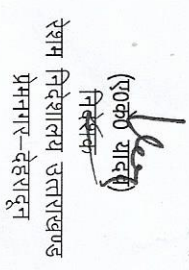 (ए०के० यादव)
निदेशक
रेशम निदेशालय उत्तराखण्ड
प्रेमनगर–देहरादून